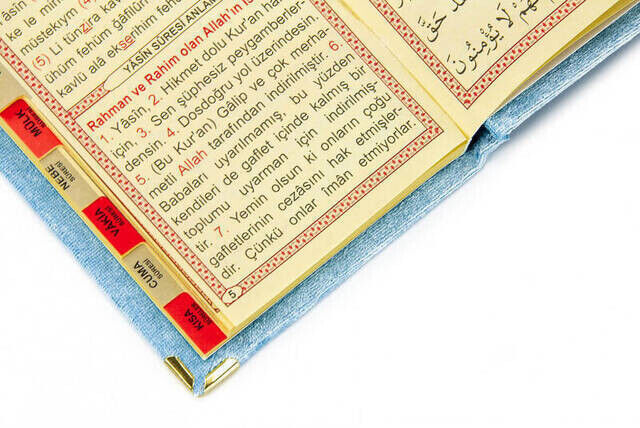 (5) Li tünzira kavm
ühüm fehüm gâfilû
kavlü alâ ekserihim fehüm
YÂSİN SÛRESİ ANLAM
Rahman ve Rahim olan Allah'ın is
1. Yâsîn, 2. Hikmet dolu Kur'an ha
için, 3. Sen şüphesiz peygamberler-
densin. 4. Dosdoğru yol üzerindesin.
5. (Bu Kur'an) Gâlip ve çok merha-
metli Allah tarafından indirilmiştir. 6.
Babaları uyarılmamış, bu yüzden
kendileri de gaflet içinde kalmış bir
toplumu uyarman için indirilmiş-
tir. 7. Yemin olsun ki onların çoğu
gafletlerinin cezâsını hak etmişler-
dir. Çünkü onlar îmân etmiyorlar.
5
لَا يُؤْمِنُونَ
MÜLK
SÛRESİ
NEBE
SÛRESİ
VÂKIA
SÛRESİ
CUMA
SÛRESİ
KISA
SÛRELER